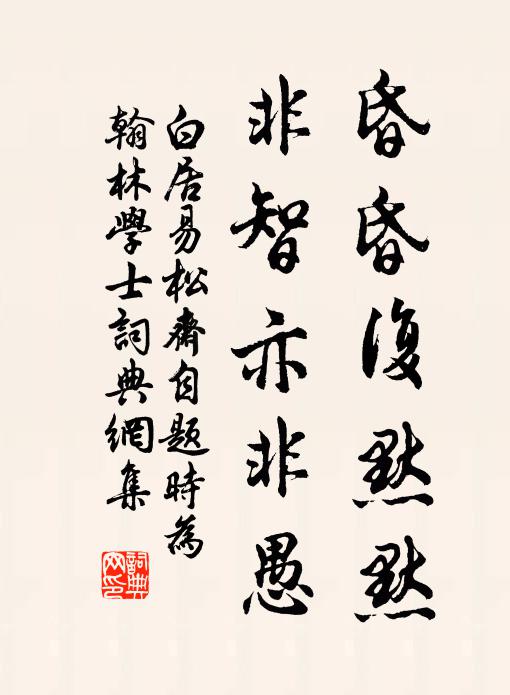 昏昏復默默
非智亦非愚
白居易松齋自題時為
翰林學士詞典網集
詞典
网印